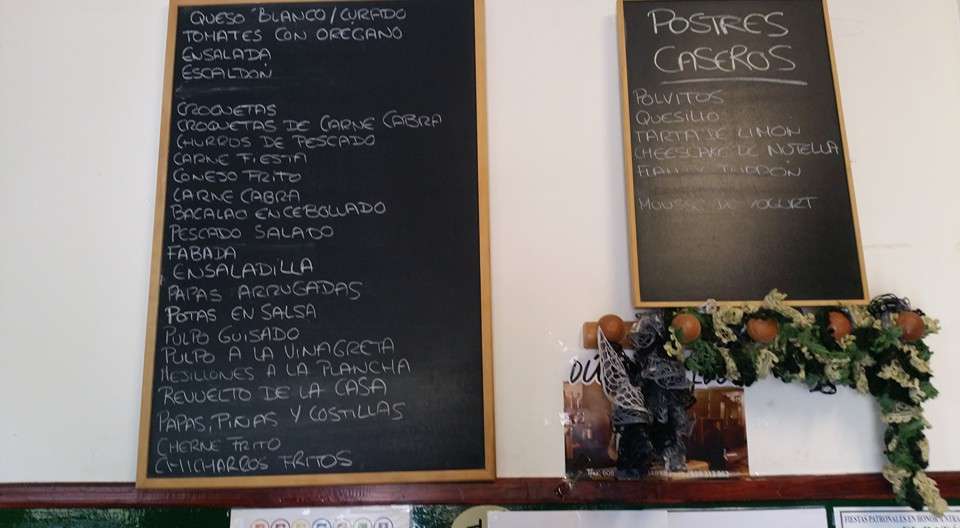 QUESO BLANCO/CURADO
TOMATES CON OREGANO
ENSALADA
ESCALDON
CROQUETAS
CROQUETAS DE CARNE CABRA
CHURROS DE PESCADO
CARNE FIESTA
CONEJO FRITO
CARNE CABRA
BACALAO ENCEBOLLADO
PESCADO SALADO
FABADA
ENSALADILLA
PAPAS ARRUGADAS
POTAS EN SALSA
PULPO GUISADO
PULPO A LA VINAGRETA
MEJILLONES A LA PLANCHA
REVUECTO DE LA CASA
PAPAS, PIÑAS Y COSTILLAS
CHERNE FRITO
CHICHARROS FRITOS
POSTRES
CASEROS
POLVITOS
QUESILLO
TARTA DE LIMON
CHEESCAKE DE NUTELLA
FLAN
MOUSSE DE YOGURT
FIESTAS PATRONALES EN HONOR